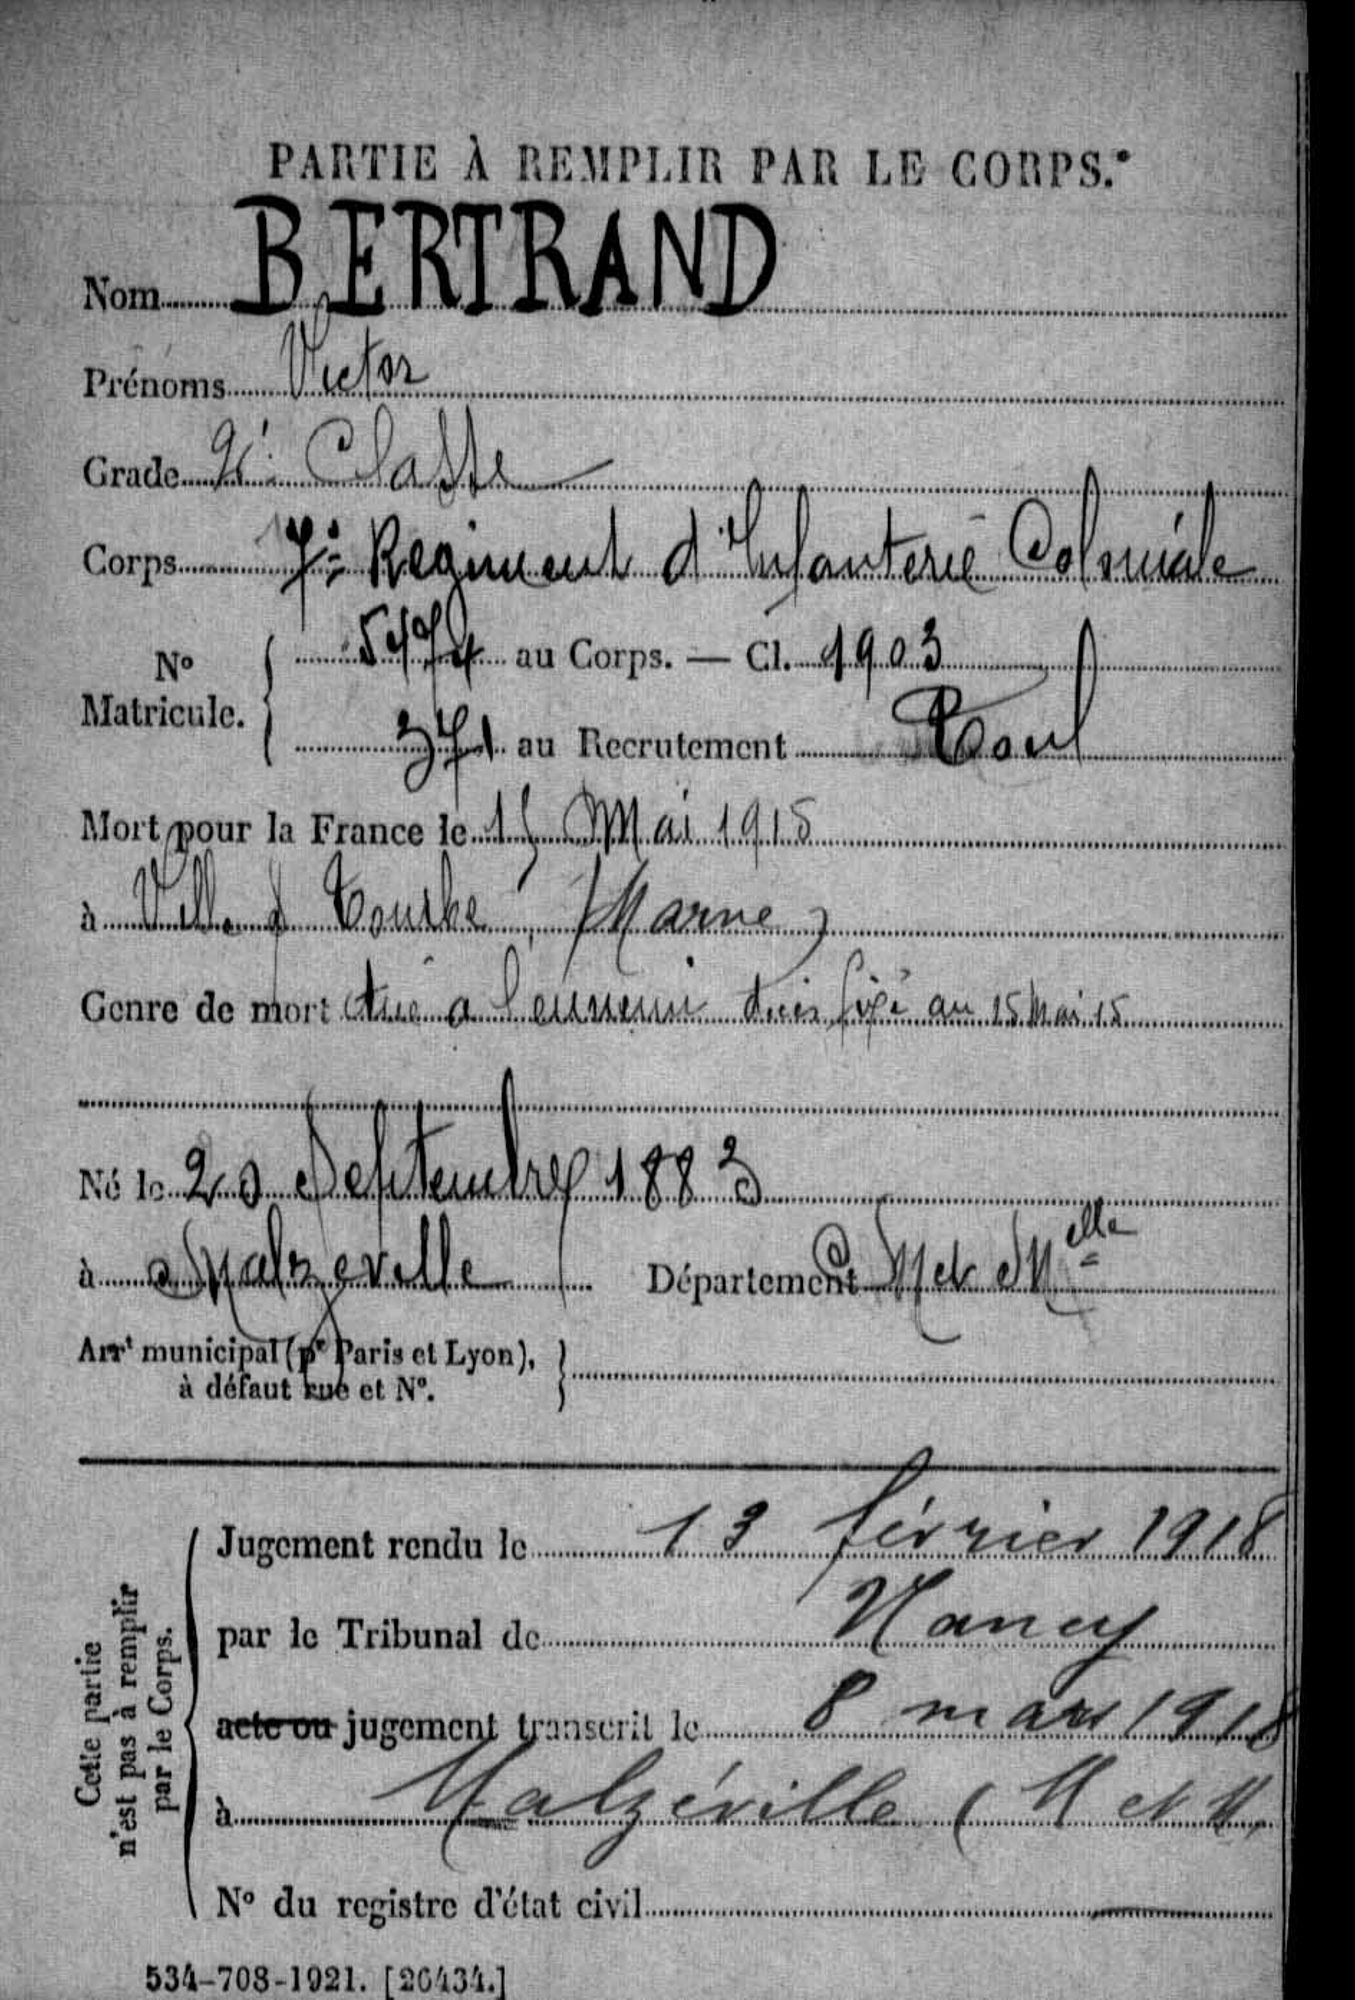 PARTIE À REMPLIR PAR LE CORPS.
Nom BERTRAND
Prénoms Victor
Grade 2e Classe
Corps 7e Regiment d'Infanterie Coloniale
No Matricule. { 5474 au Corps. — Cl. 1903
371 au Recrutement Toul
Mort pour la France le 15 Mai 1915
à Ville s/ Tourbe (Marne)
Genre de mort tué a l'ennemi décès fixé au 15 Mai 15
Né le 20 Septembre 1883
à Malzeville Département M et Mlle
Arrt municipal (pr Paris et Lyon), }
à défaut rue et No.
Cette partie
n'est pas à remplir
par le Corps.
Jugement rendu le 13 février 1918
par le Tribunal de Nancy
acte ou jugement transcrit le 8 mars 1918
à Malzéville (M et M.
No du registre d'état civil
534-708-1921. [26434.]